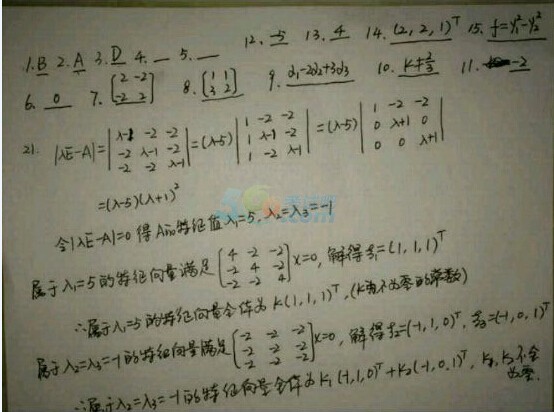 12. -5 13. 4 14. (2, 2, 1)^T 15. f=y₁²-y₂²
1. B 2. A 3. D 4. __ 5. __
6. 0 7. [2 -2; -2 2] 8. [1 1; 3 2] 9. α₁-2α₂+3α₃ 10. k≠2/3 11. -2
21. |λE-A| = |λ-1 -2 -2; -2 λ-1 -2; -2 -2 λ-1| = (λ-5) |1 -2 -2; 1 λ-1 -2; 1 -2 λ-1| = (λ-5) |1 -2 -2; 0 λ+1 0; 0 0 λ+1|
=(λ-5)(λ+1)²
令|λE-A|=0 得A的特征值λ₁=5, λ₂=λ₃=-1
属于λ₁=5的特征向量满足 [4 -2 -2; -2 4 -2; -2 -2 4] x=0, 解得ξ₁=(1,1,1)^T
∴属于λ₁=5的特征向量全体为 k(1,1,1)^T, (k为不为零的常数)
属于λ₂=λ₃=-1的特征向量满足 [-2 -2 -2; -2 -2 -2; -2 -2 -2] x=0, 解得ξ₂=(-1,1,0)^T, ξ₃=(-1,0,1)^T
∴属于λ₂=λ₃=-1的特征向量全体为 k₁(-1,1,0)^T+k₂(-1,0,1)^T, k₁, k₂不全为零.